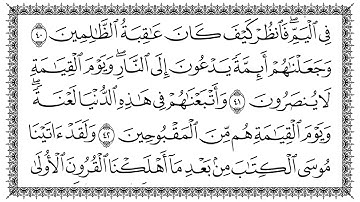 فِى ٱلْيَمِّ ۖ فَٱنظُرْ كَيْفَ كَانَ عَٰقِبَةُ ٱلظَّٰلِمِينَ ٤٠
وَجَعَلْنَٰهُمْ أَئِمَّةً يَدْعُونَ إِلَى ٱلنَّارِ ۖ وَيَوْمَ ٱلْقِيَٰمَةِ
لَا يُنصَرُونَ ٤١ وَأَتْبَعْنَٰهُمْ فِى هَٰذِهِ ٱلدُّنْيَا لَعْنَةً ۖ
وَيَوْمَ ٱلْقِيَٰمَةِ هُم مِّنَ ٱلْمَقْبُوحِينَ ٤٢ وَلَقَدْ ءَاتَيْنَا
مُوسَى ٱلْكِتَٰبَ مِنۢ بَعْدِ مَآ أَهْلَكْنَا ٱلْقُرُونَ ٱلْأُولَىٰ